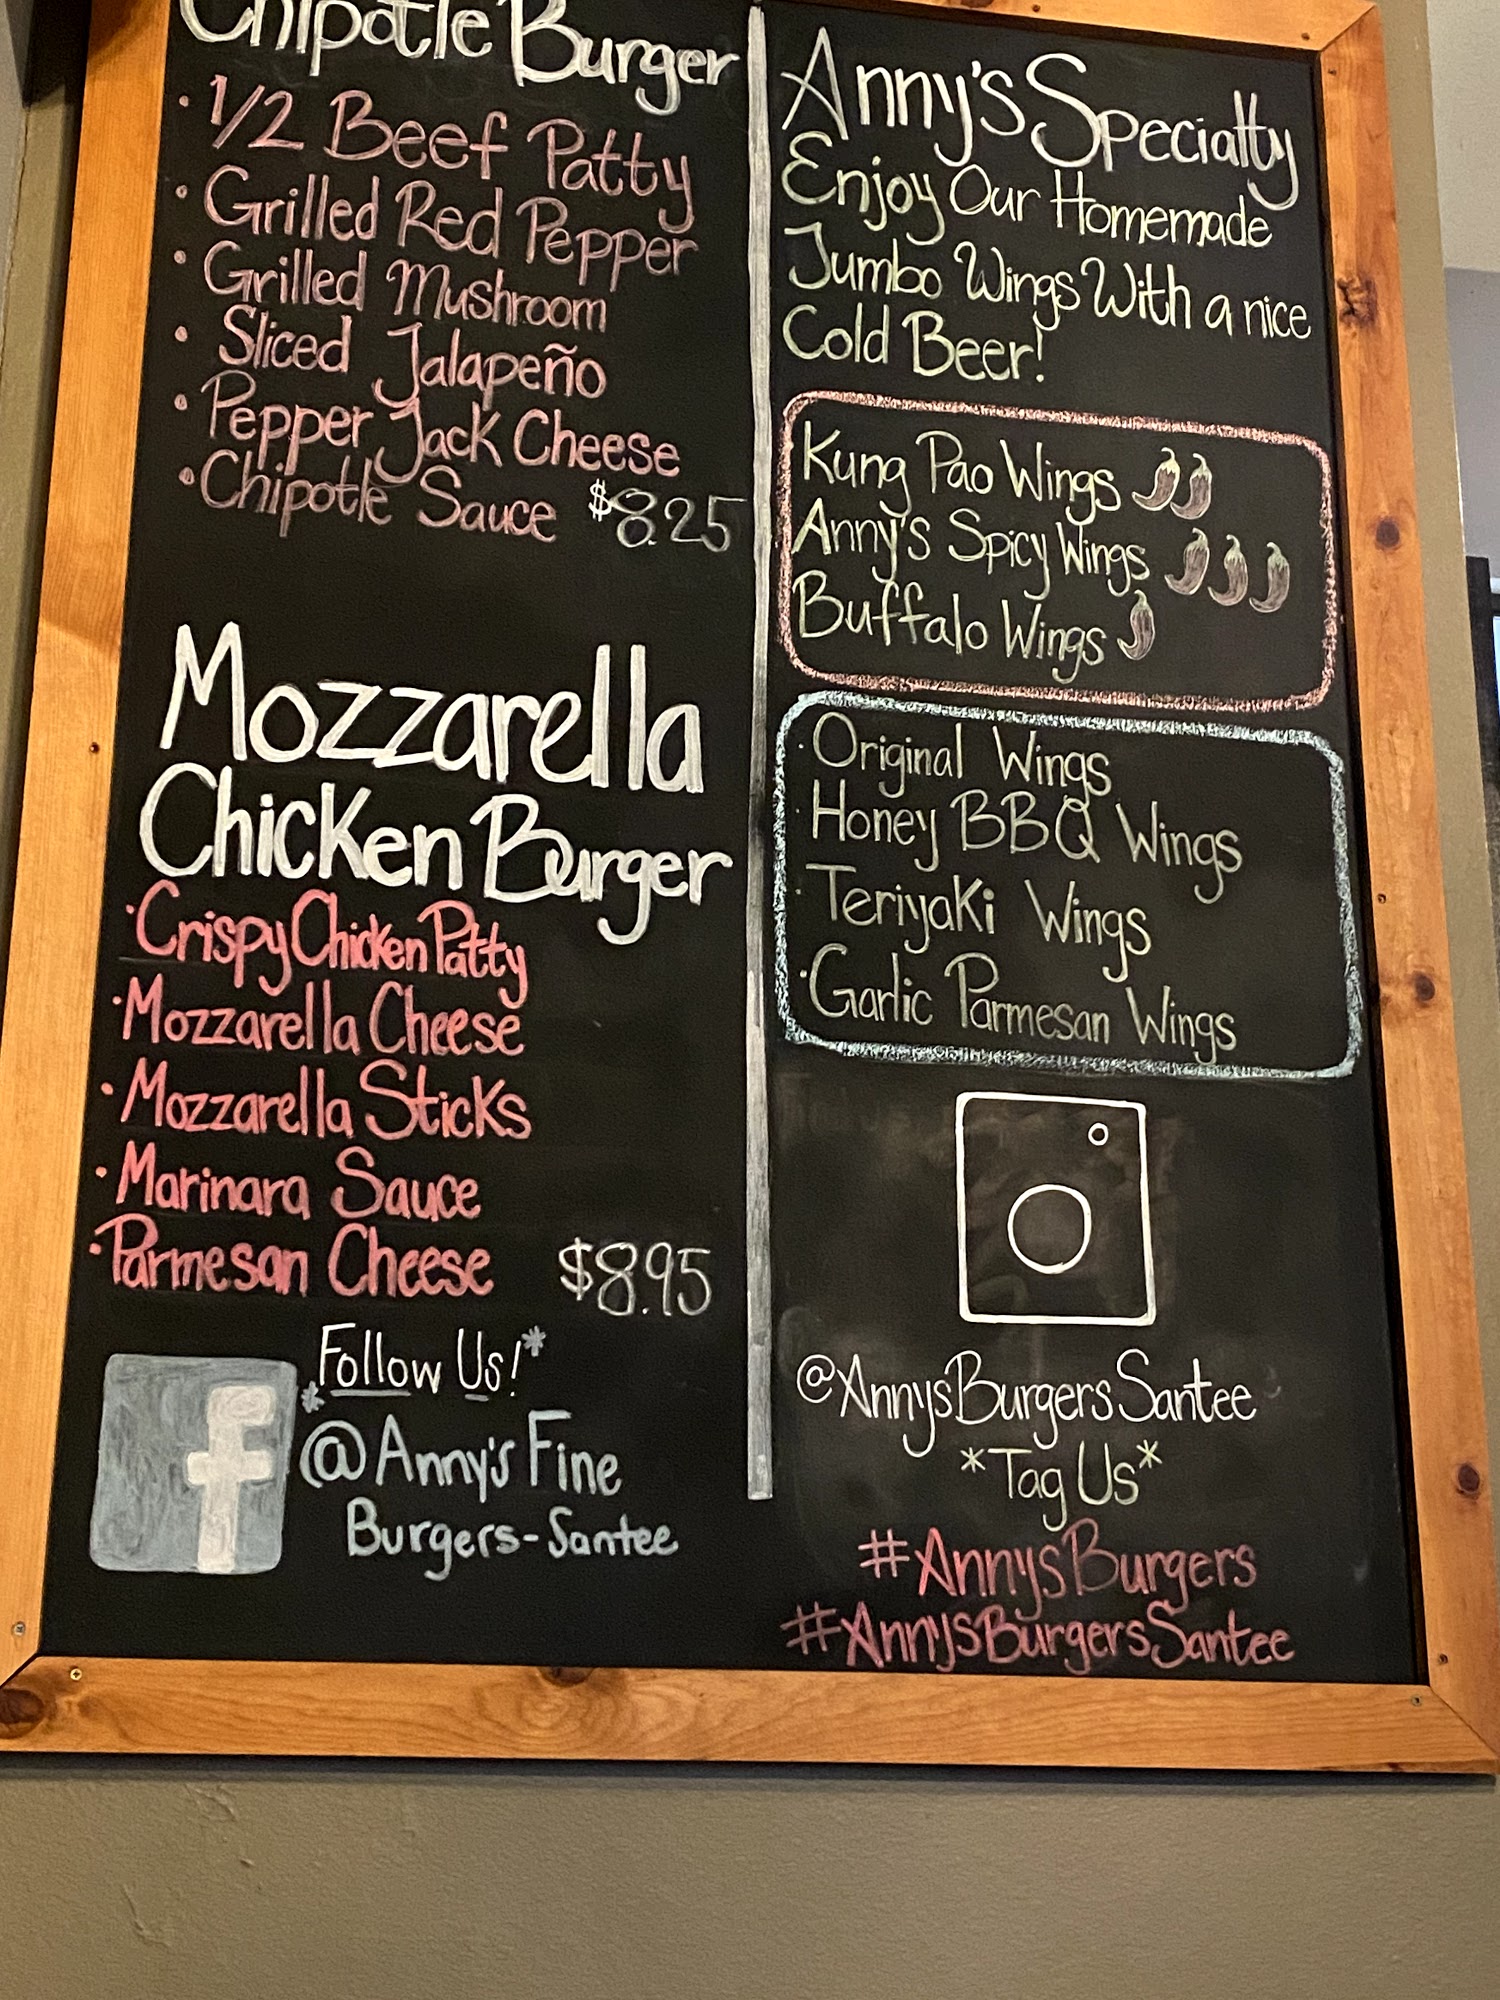 Chipotle Burger
· 1/2 Beef Patty
· Grilled Red Pepper
· Grilled Mushroom
· Sliced Jalapeño
· Pepper Jack Cheese
· Chipotle Sauce $8.25
Mozzarella
Chicken Burger
· Crispy Chicken Patty
· Mozzarella Cheese
· Mozzarella Sticks
· Marinara Sauce
· Parmesan Cheese $8.95
f
*Follow Us!*
@Anny's Fine
Burgers-Santee
Anny's Specialty
Enjoy Our Homemade
Jumbo Wings With a nice
Cold Beer!
Kung Pao Wings
Anny's Spicy Wings
Buffalo Wings
· Original Wings
· Honey BBQ Wings
· Teriyaki Wings
· Garlic Parmesan Wings
@AnnysBurgersSantee
*Tag Us*
#AnnysBurgers
#AnnysBurgersSantee